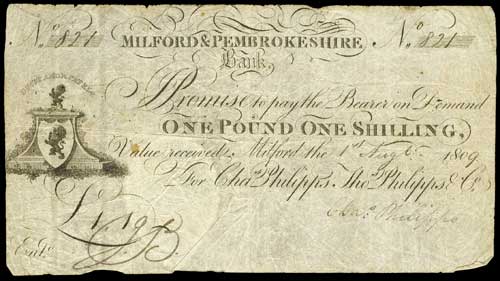 No 821 No 821
MILFORD & PEMBROKESHIRE
Bank.
Promise to pay the Bearer on Demand
ONE POUND ONE SHILLING,
Value received Milford the 1st Augt 1809
For Chas Philipps, Thos Philipps & Co
Chas Philipps
Entd